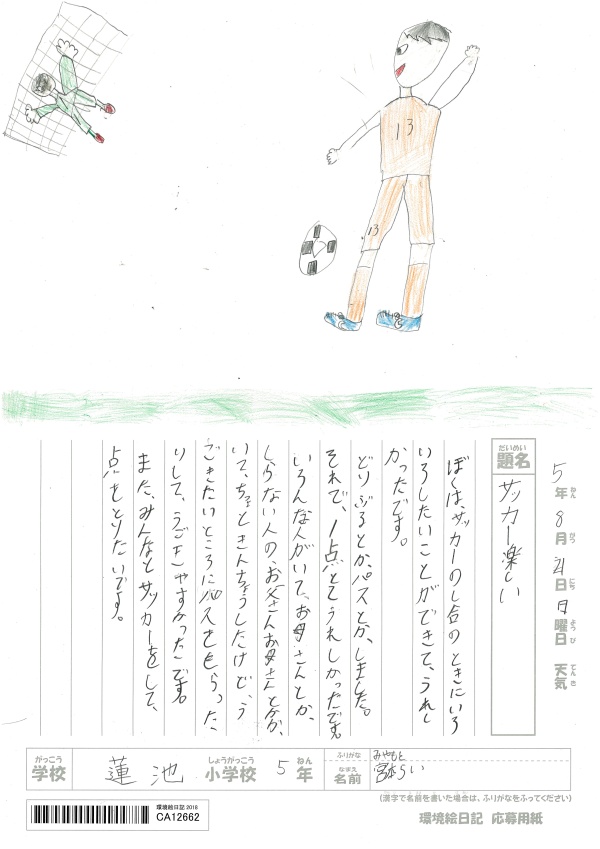 13
13
5年8月21日日曜日 天気
ねん がつ にち ようび てんき
だいめい
題名 サッカー楽しい
ぼくは、サッカーのし合のときにいろ
いろしたいことができて、うれし
かったです。
どりぶるとか、パスとか、しました。
それで、1点とてうれしかったです。
いろんな人がいて、お母さんとか、
しらない人の、お父さんお母さんとかが、
いて、ちょときんちょうしたけど、う
ごきたいところにパスをもらった
りして、うごきやすかったです。
また、みんなとサッカーをして、
点をとりたいです。
がっこう しょうがっこう ねん ふりがな みやもと
学校 蓮池 小学校 5年 なまえ 名前 宮本らい
(漢字で名前を書いた場合は、ふりがなをふってください)
環境絵日記 2018
CA12662
環境絵日記 応募用紙